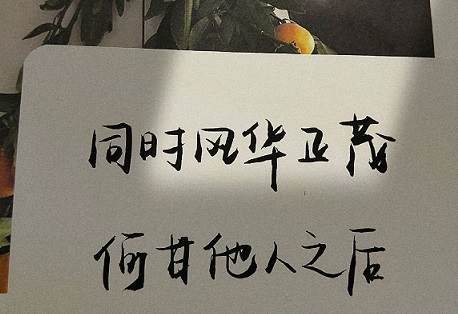 同时风华正茂
何甘他人之后